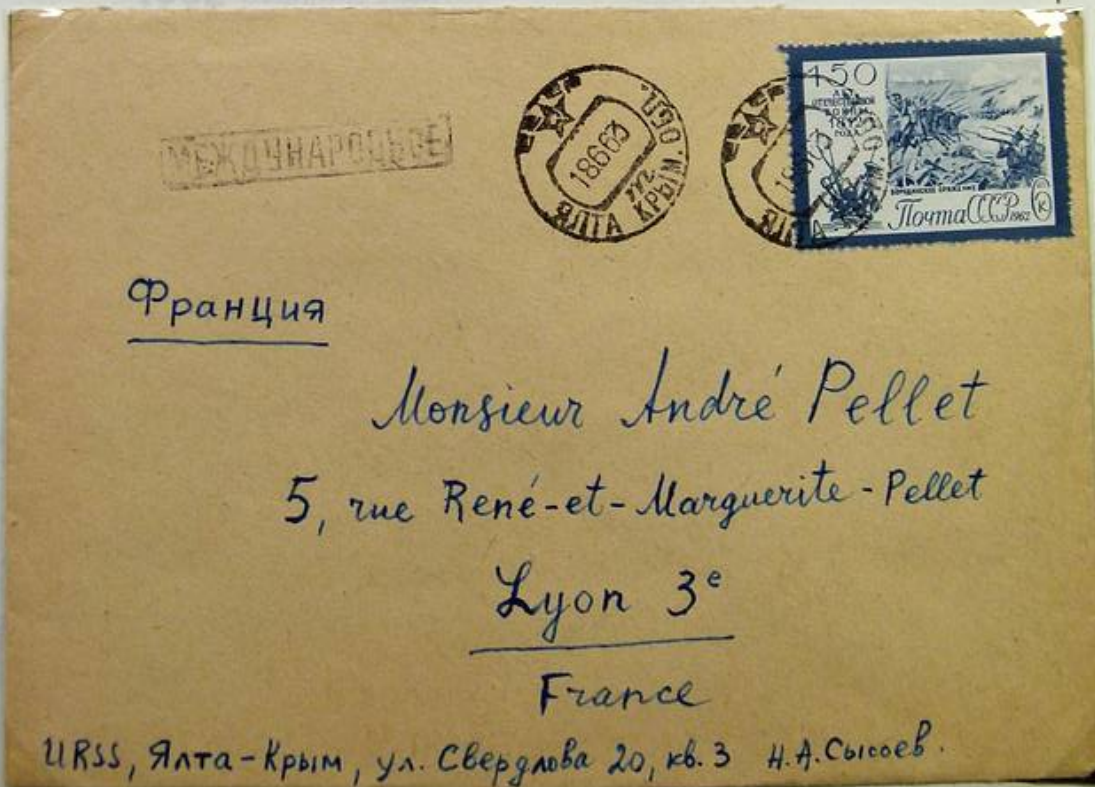 МЕЖДУНАРОДНОЕ
18663
ЯЛТА КРЫМ. ОБЛ.
150
ЛЕТ
ОТЕЧЕСТВЕННОЙ
ВОЙНЫ
1812
ГОДА
БОРОДИНСКОЕ СРАЖЕНИЕ
Почта СССР 1962
к
ЯЛТА
Франция
Monsieur André Pellet
5, rue René-et-Marguerite-Pellet
Lyon 3e
France
URSS, Ялта-Крым, ул. Свердлова 20, кв. 3 Н.А.Сысоев.